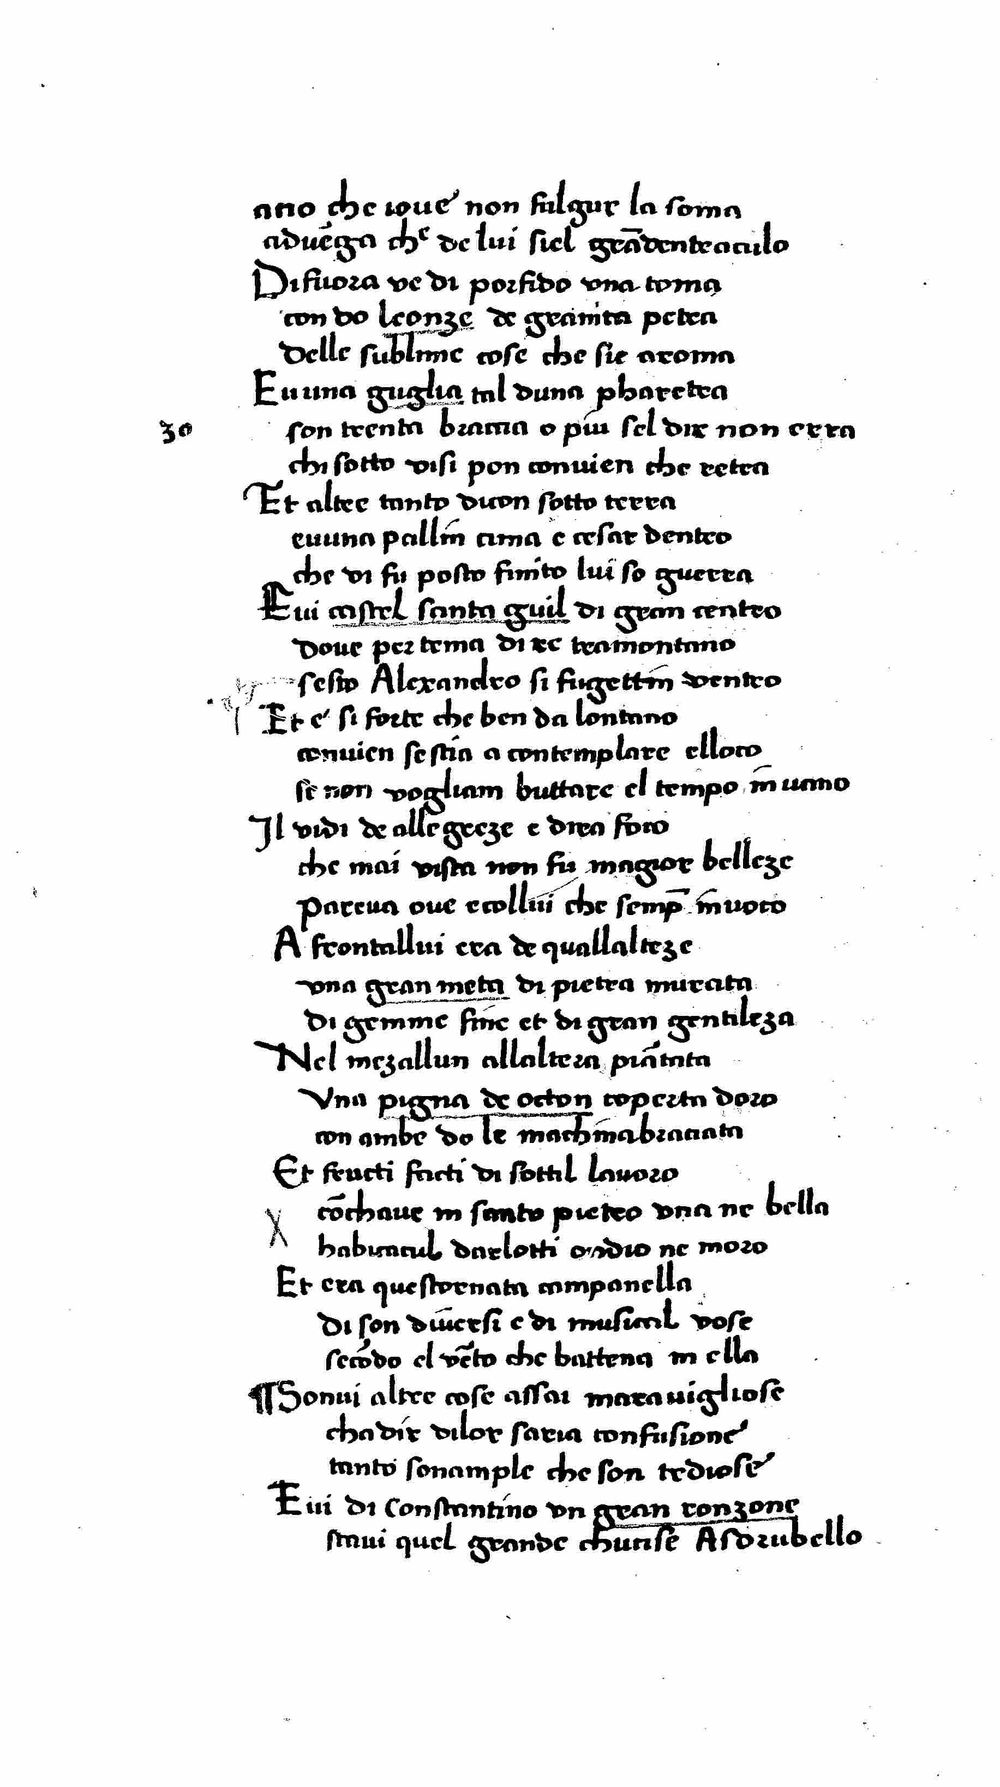 acio che ioue non fulgur la soma
aduēga che de lui siel grādenteaculo
Difuora ve di porfido vna toma
con do leonze de granita petra
delle sublime cose che sie aroma
Euuna guglia tal duna pharetra
30 son trenta bracia o piu sel dir non erra
chi sotto visi pon convien che retra
Et altre tanto dicon sotto terra
euuna pallin cima e cesar dentro
che vi fu posto finito lui so guerra
Eui castel santa gnil di gran centro
doue per tema di re tramontano
sesto Alexandro si fugettin ventro
Et e si forte che ben da lontano
convien se stia a contemplare elloco
se non vogliam buttare el tempo in uano
Il vidi de allegreze e dica foco
che mai vista non fu magior belleze
pareua oue ecollui che semp̄ invoco
A frontallui era de quallalteze
vna gran meta di pietra murata
di gemme fine et di gran gentileza
Nel mezallun allaltera piātata
Vna pigna de octon coperta doro
con ambe do le machinabraciata
Et fructi facti di sottil lavoro
cōchaue in santo pietro vna ne bella
habitacul darlotti ondio ne moro
Et era questornata campanella
di son diuersi e di musical vose
secōdo el vēto che battena in ella
¶ Sonui altre cose assai maravigliose
chadir dilor saria confusione
tanto sonample che son tediose
Eui di Constantino vn gran ronzone
stavi quel grande chucise Asdrubello